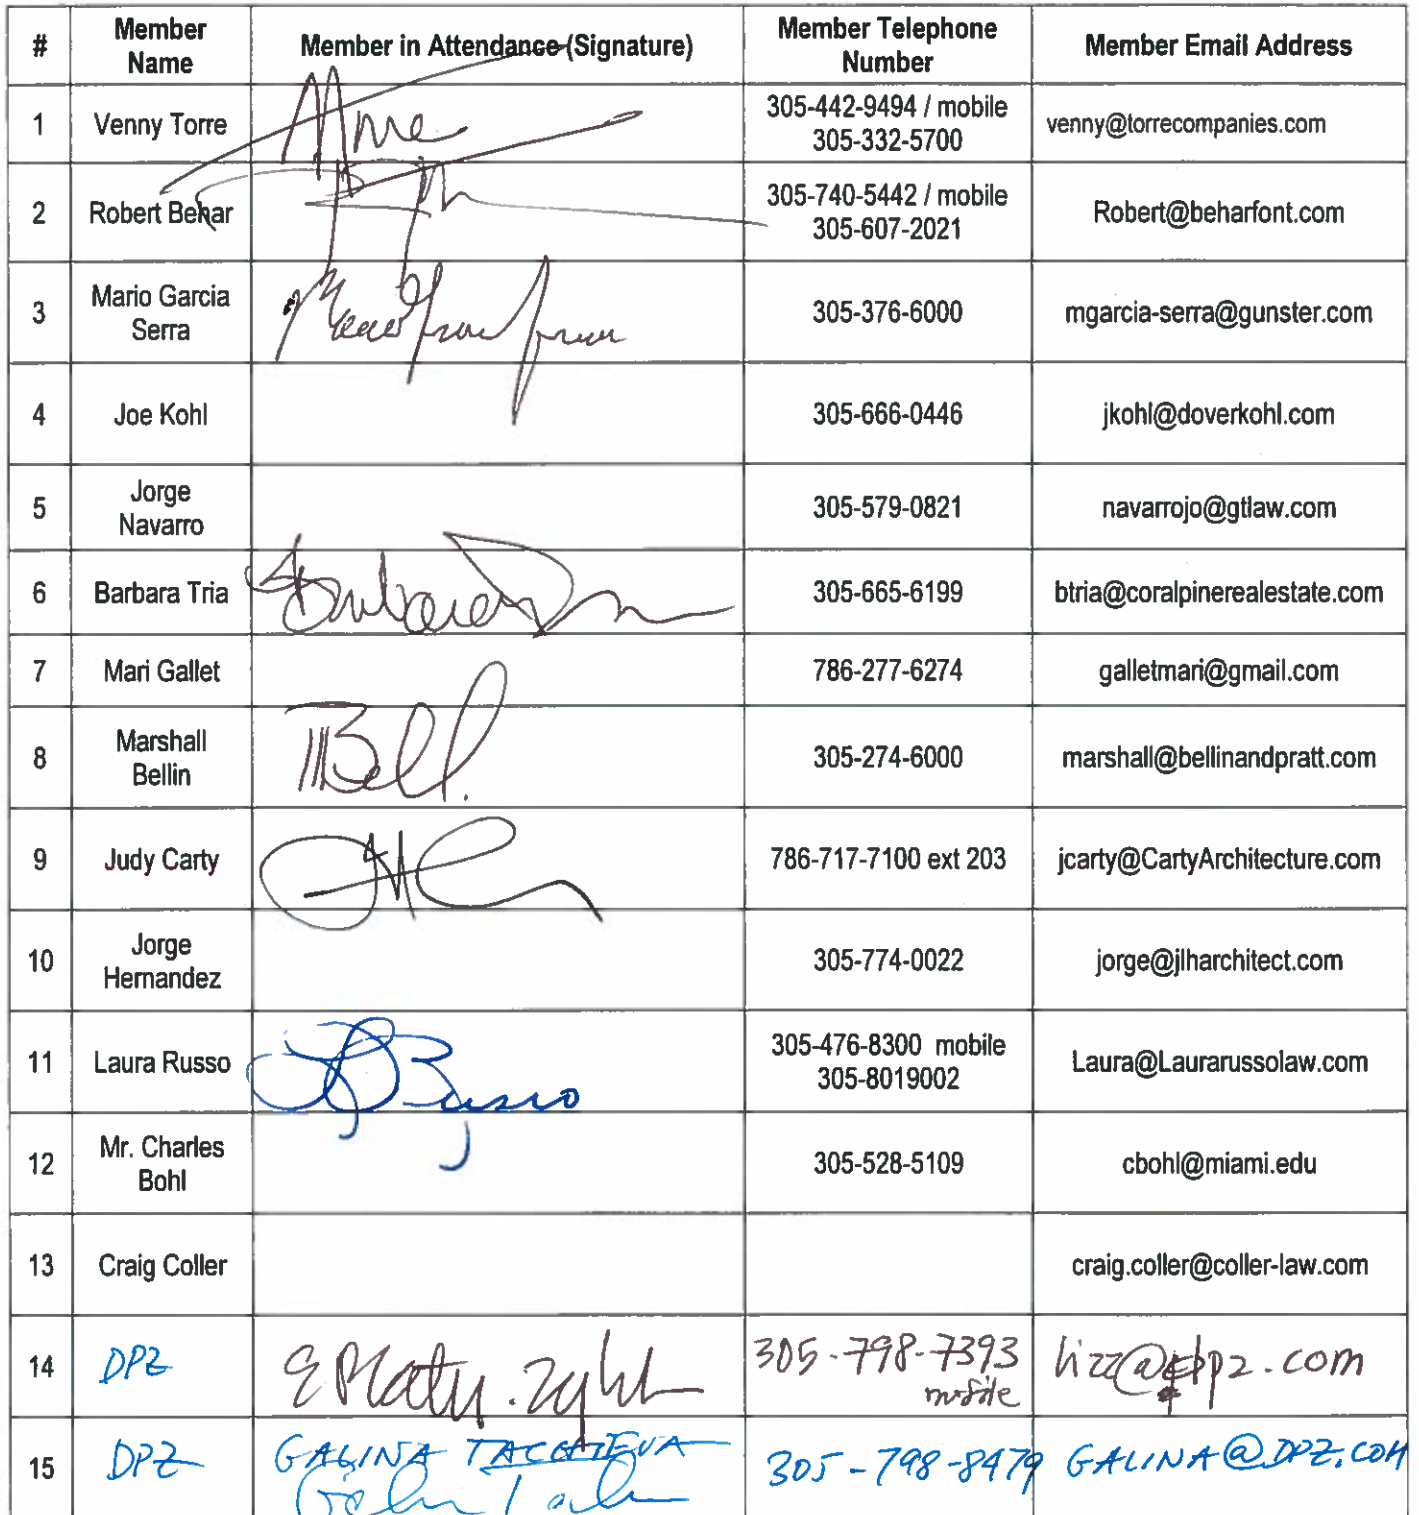 #
Member
Name
Member in Attendance (Signature)
Member Telephone
Number
Member Email Address
1
Venny Torre
305-442-9494 / mobile
305-332-5700
venny@torrecompanies.com
2
Robert Behar
305-740-5442 / mobile
305-607-2021
Robert@beharfont.com
3
Mario Garcia
Serra
305-376-6000
mgarcia-serra@gunster.com
4
Joe Kohl
305-666-0446
jkohl@doverkohl.com
5
Jorge
Navarro
305-579-0821
navarrojo@gtlaw.com
6
Barbara Tria
Barbara
305-665-6199
btria@coralpinerealestate.com
7
Mari Gallet
786-277-6274
galletmari@gmail.com
8
Marshall
Bellin
MBell.
305-274-6000
marshall@bellinandpratt.com
9
Judy Carty
786-717-7100 ext 203
jcarty@CartyArchitecture.com
10
Jorge
Hernandez
305-774-0022
jorge@jlharchitect.com
11
Laura Russo
Russo
305-476-8300 mobile
305-8019002
Laura@Laurarussolaw.com
12
Mr. Charles
Bohl
305-528-5109
cbohl@miami.edu
13
Craig Coller
craig.coller@coller-law.com
14
DPZ
305-798-7393
mobile
lizz@dpz.com
15
DPZ
GALINA
305-798-8479
GALINA@DPZ.COM